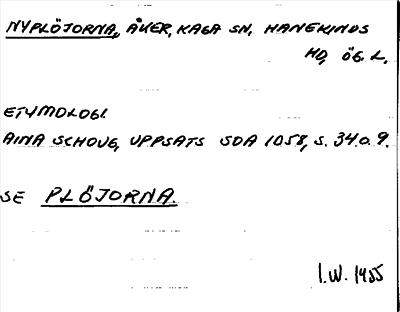 NYPLÖJORNA, ÅKER, KAGA SN, HANEKINDS
HD, ÖG. L.
ETYMOLOGI.
AINA SCHOUG, UPPSATS SOA 1058, S. 34 o. 9.
SE PLÖJORNA.
I.W. 1955